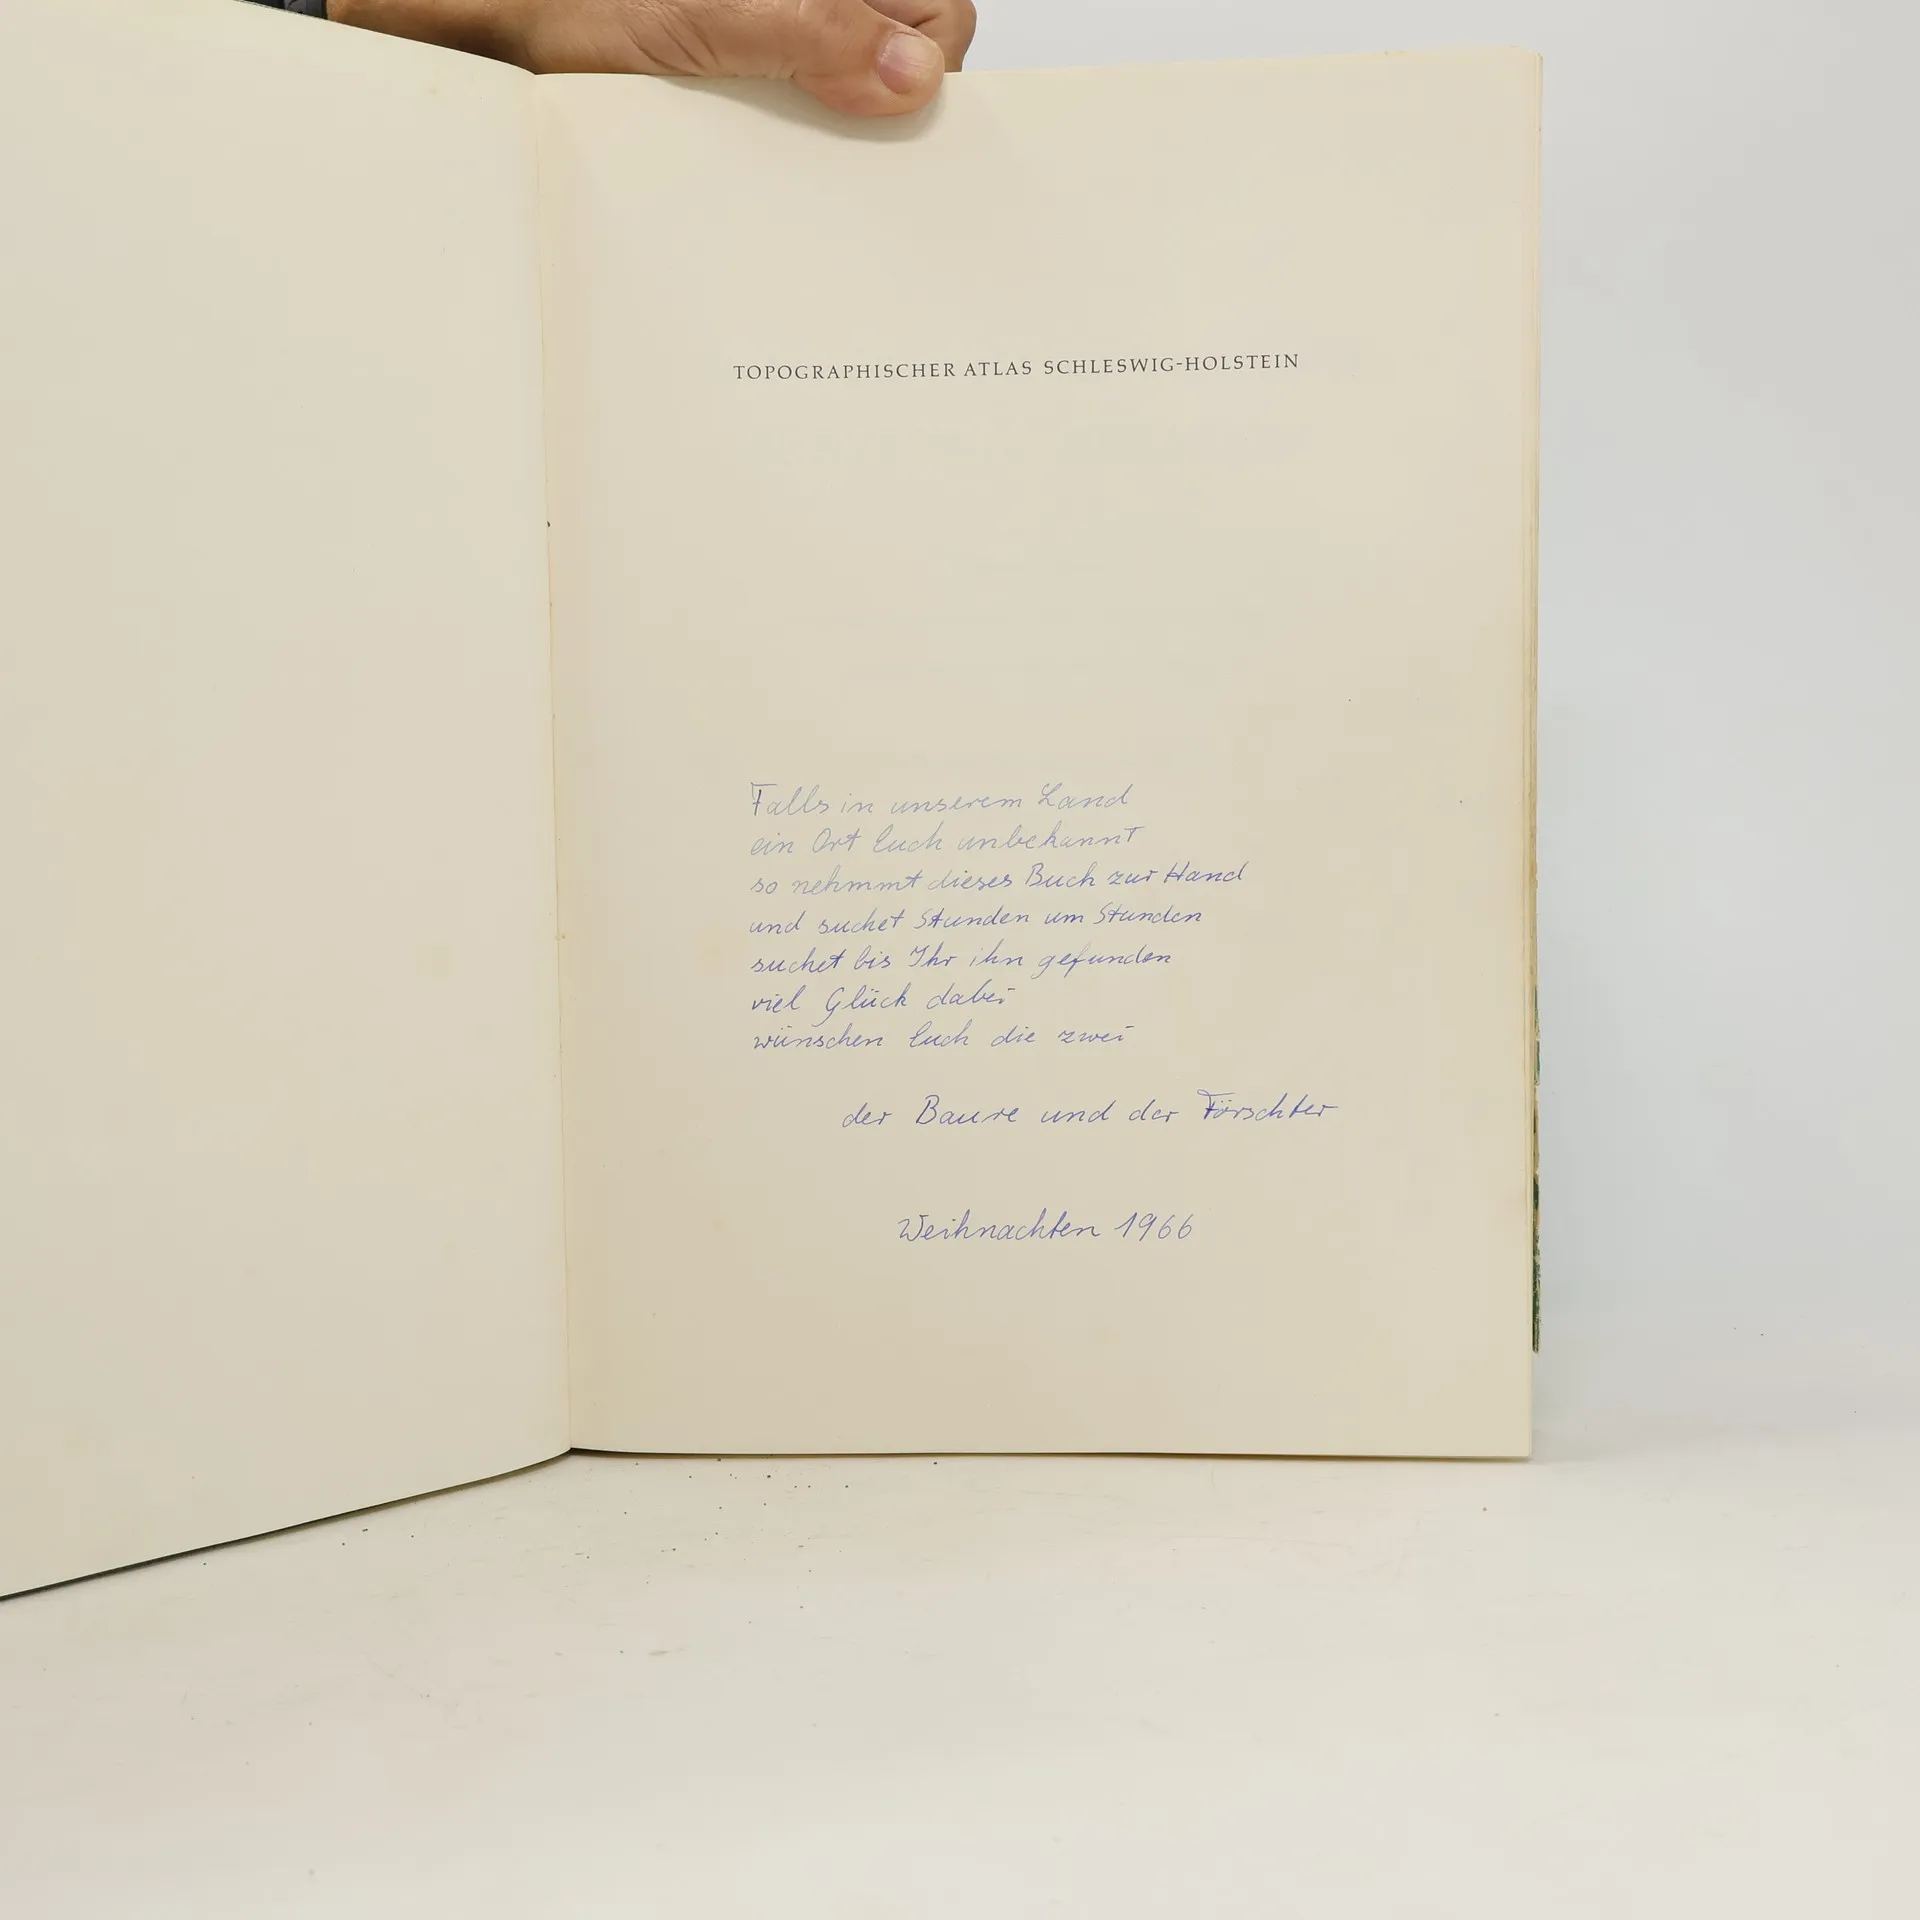 TOPOGRAPHISCHER ATLAS SCHLESWIG-HOLSTEIN
Falls in unserem Land
ein Ort Euch unbekannt
so nehmmt dieses Buch zur Hand
und suchet Stunden um Stunden
suchet bis Ihr ihn gefunden
viel Glück dabei
wünschen Euch die zwei
der Baure und der Förschter
Weihnachten 1966